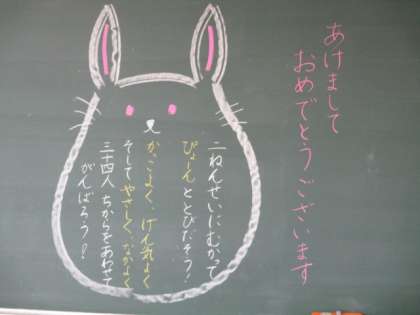 あけまして
おめでとうございます
二ねんせいにむかって
ぴょーんととびだそう！
かっこよく、げん気よく
そしてやさしく、なかよく
三十四人 ちからをあわせて
がんばろう！